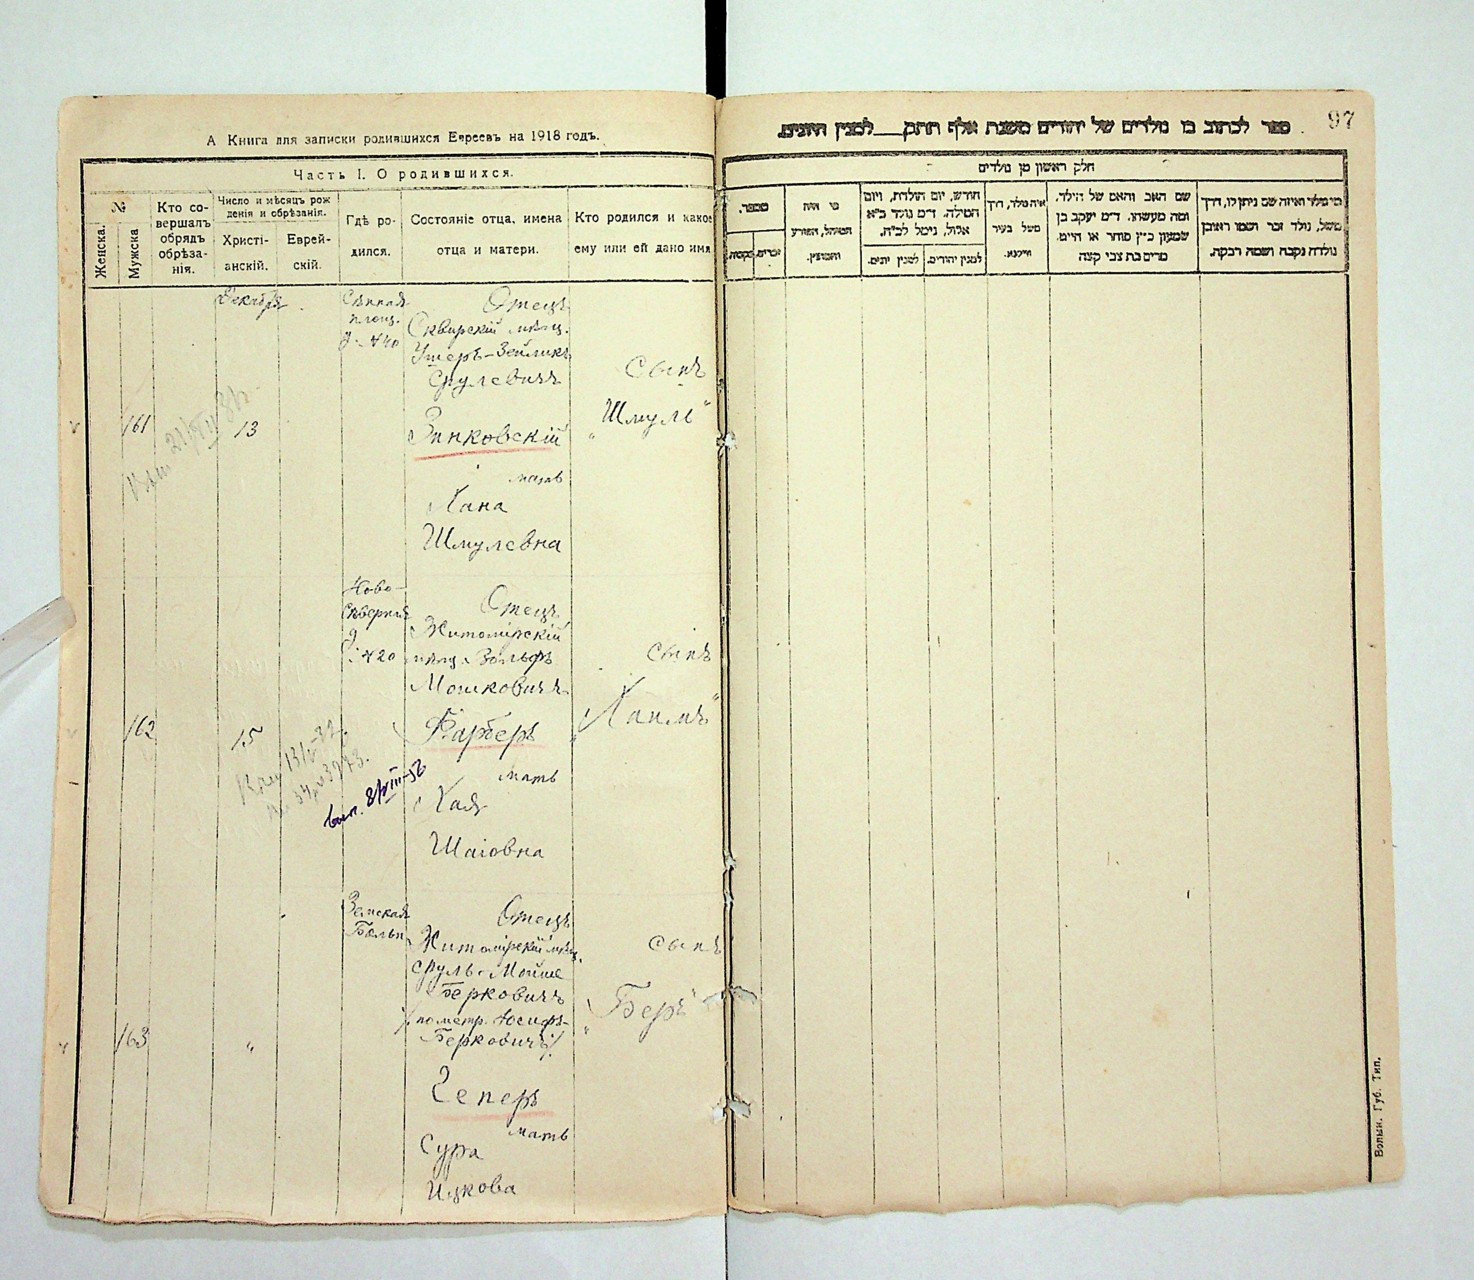 А Книга для записки родившихся Евреевъ на 1918 годъ.
Часть I. О родившихся.
№
Женска.
Мужска
Кто со-
вершалъ
обрядъ
обрѣза-
нія.
Число и мѣсяцъ рож
денія и обрѣзанія.
Христі-
анскій.
Еврей-
скій.
Гдѣ ро-
дился.
Состояніе отца, имена
отца и матери.
Кто родился и какое
ему или ей дано имя
Декабря
161
13
Сѣнная
площ.
д. №40
Отецъ
Сквирскій мѣщ.
Ушеръ-Зейликъ
Срулевичъ
Зинковскій
мать
Хана
Шмулевна
Сынъ
„Шмуль"
162
15
Ново-
Сѣверная
д. №20
Отецъ
Житомірскій
мѣщ. Вольфъ
Мошковичъ
Фарберъ
мать
Хая
Шаіовна
сынъ
„Хаимъ"
163
"
Земская
Больн.
Отецъ
Житомірскій мѣщ.
Сруль-Мойше
Беркович
/по метр. Іосифъ-
Берковичъ/
Чеперъ
мать
Сура
Ицкова
сынъ
„Беръ"
97
ספר לכתוב בו נולדים של יהודים משנת אלף תתק___למנין היונים.
חלק ראשון מן נולדים
מספר.
זכרים.
נקבות.
מי היה
המוהל, הפורע
והמוצץ.
חודש, יום הולדת, ויום
המילה. ד״מ נולד כ״א
אלול, נימל לכ״ח.
למנין יהודים.
למנין יונים.
איה נולד, דרך
משל בעיר
ווילנא.
שם האב והאם של הילד.
ומה מעשהו. ד״מ יעקב בן
שמעון כ״ץ סוחר או חייט.
מרים בת צבי קצה
מי נולד ואיזה שם ניתן לו, דרך
משל, נולד זכר ושמו ראובן
נולדה נקבה ושמה רבקה.
Волын. Губ. Тип.